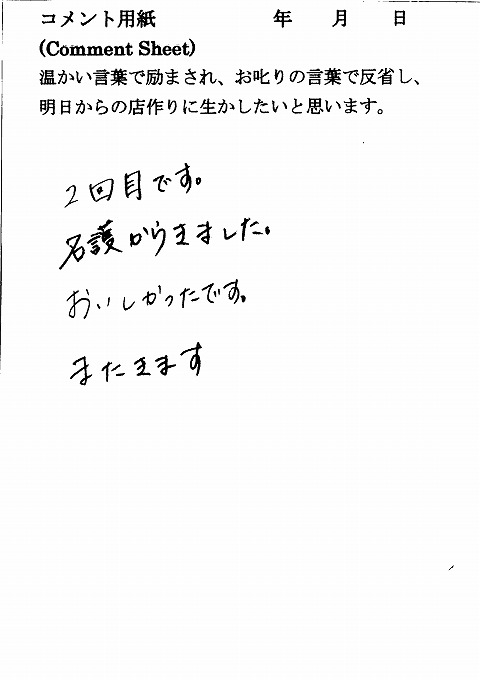 コメント用紙 年 月 日
(Comment Sheet)
温かい言葉で励まされ、お叱りの言葉で反省し、
明日からの店作りに生かしたいと思います。
2回目です。
名護からきました。
おいしかったです。
またきます